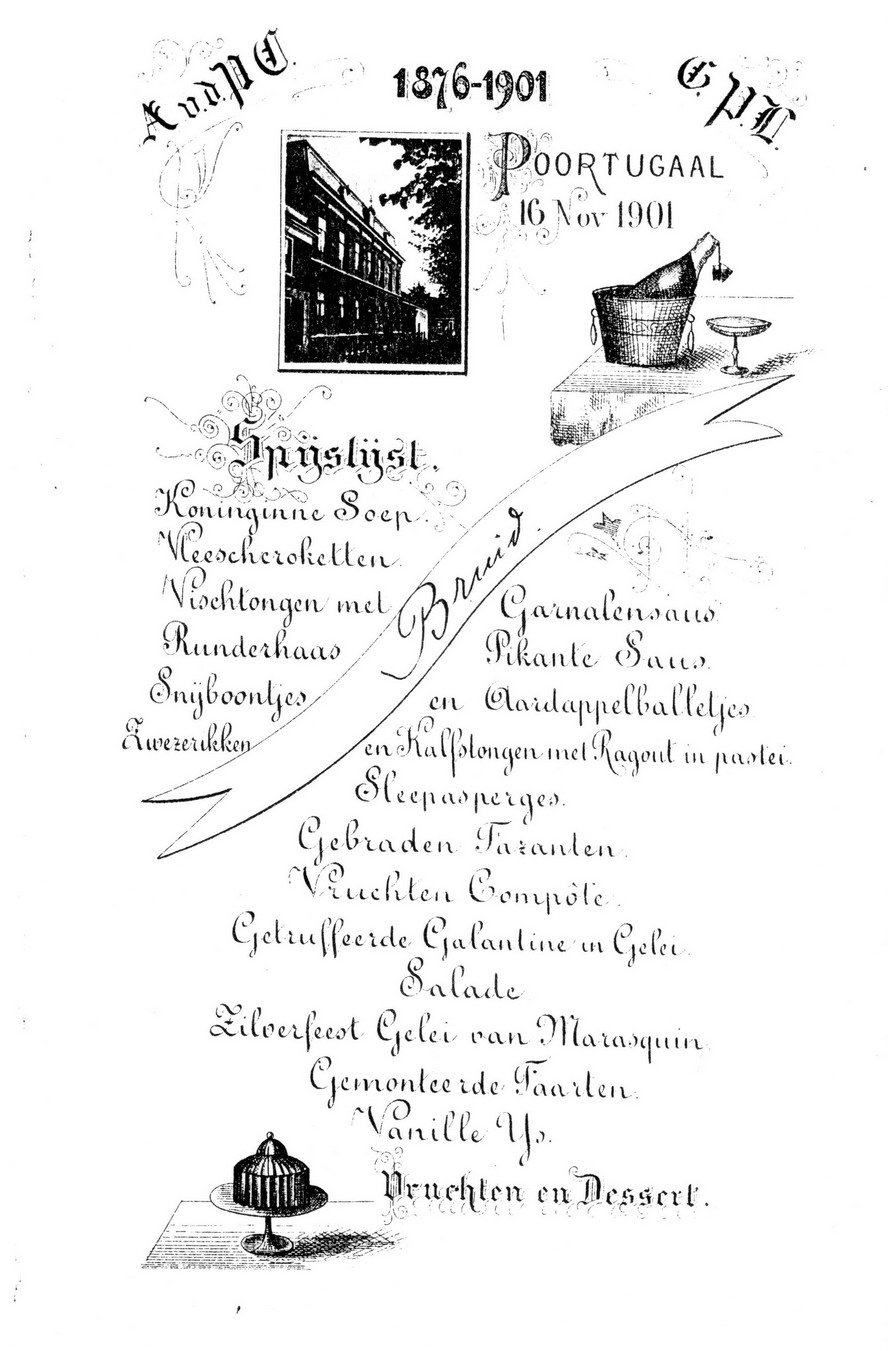 A v.d. P.C.
1876-1901
G.P.L.
POORTUGAAL
16 Nov 1901
Spijslijst.
Koninginne Soep.
Vleeschcroketten.
Vischtongen met Garnalensaus
Runderhaas Pikante Saus.
Snijboontjes en Aardappelballetjes
Zwezerikken en Kalfstongen met Ragout in pastei.
Bruid.
Sleepasperges.
Gebraden Fazanten.
Vruchten Compôte.
Getruffeerde Galantine in Gelei.
Salade
Zilverfeest Gelei van Marasquin.
Gemonteerde Taarten.
Vanille Ys.
Vruchten en Dessert.